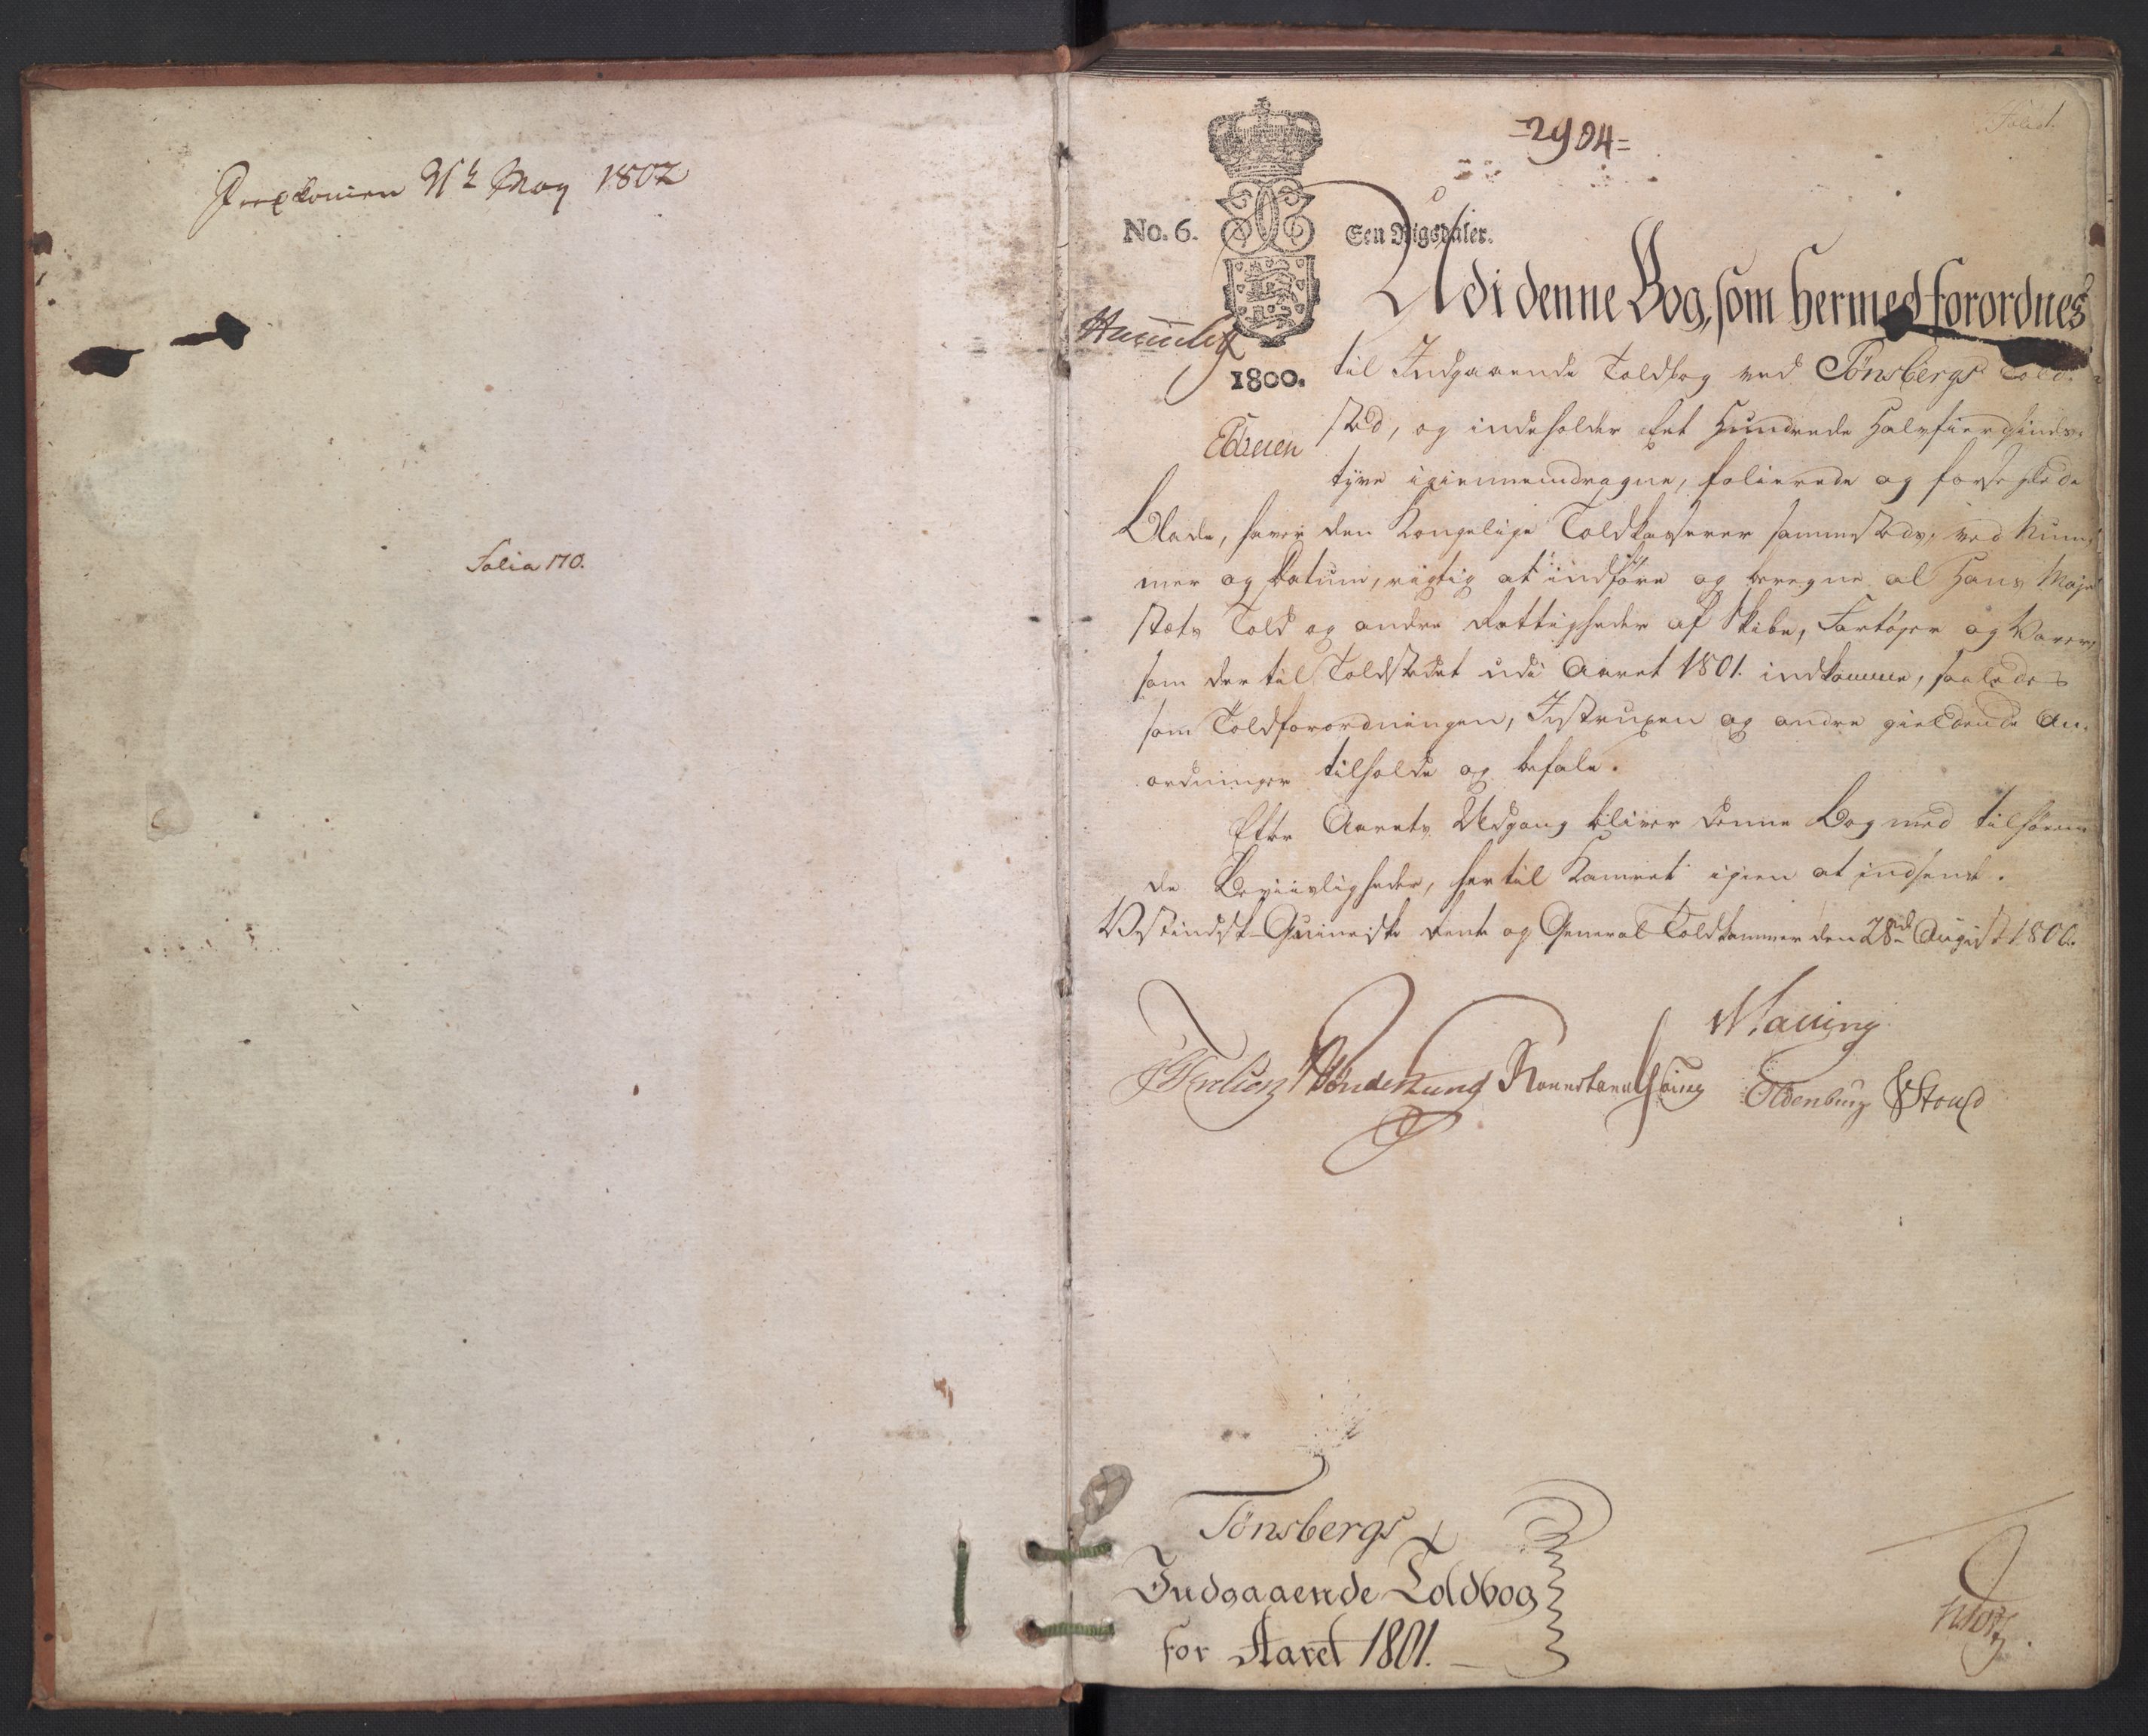 May 1802
Folia 170.
Fol: 1.
=2904=
No. 6.
Een Rigsdaler.
1800.
Udi denne Bog, som hermed forordnes
til Indgaaende Toldbog ved Tønsbergs Told-
sted, og indeholder Eet Hundrede Halvfierdsinds-
tyve igiennemdragne, folierede og forseglede
Blade, haver den Kongelige Toldkasserer sammesteds, ved Num-
mer og Datum, rigtig at indføre og beregne al Hans Maje-
stæts Told og andre Rettigheder af Skibe, Fartøjer og Varer,
som der til Toldstedet udi Aaret 1801. indkomme, saaledes
som Toldforordningen, Instruxen og andre gieldende An-
ordninger tilholde og befale.
Efter Aarets Udgang bliver denne Bog med tilhøren-
de Beviisligheder, her til Kammeret igien at indsende.
Vestindisk-Guineiske Rente og General-Toldkammer den 28de August 1800.
Oldenburg
Tønsbergs
Indgaaende Toldbog
for Aaret 1801.